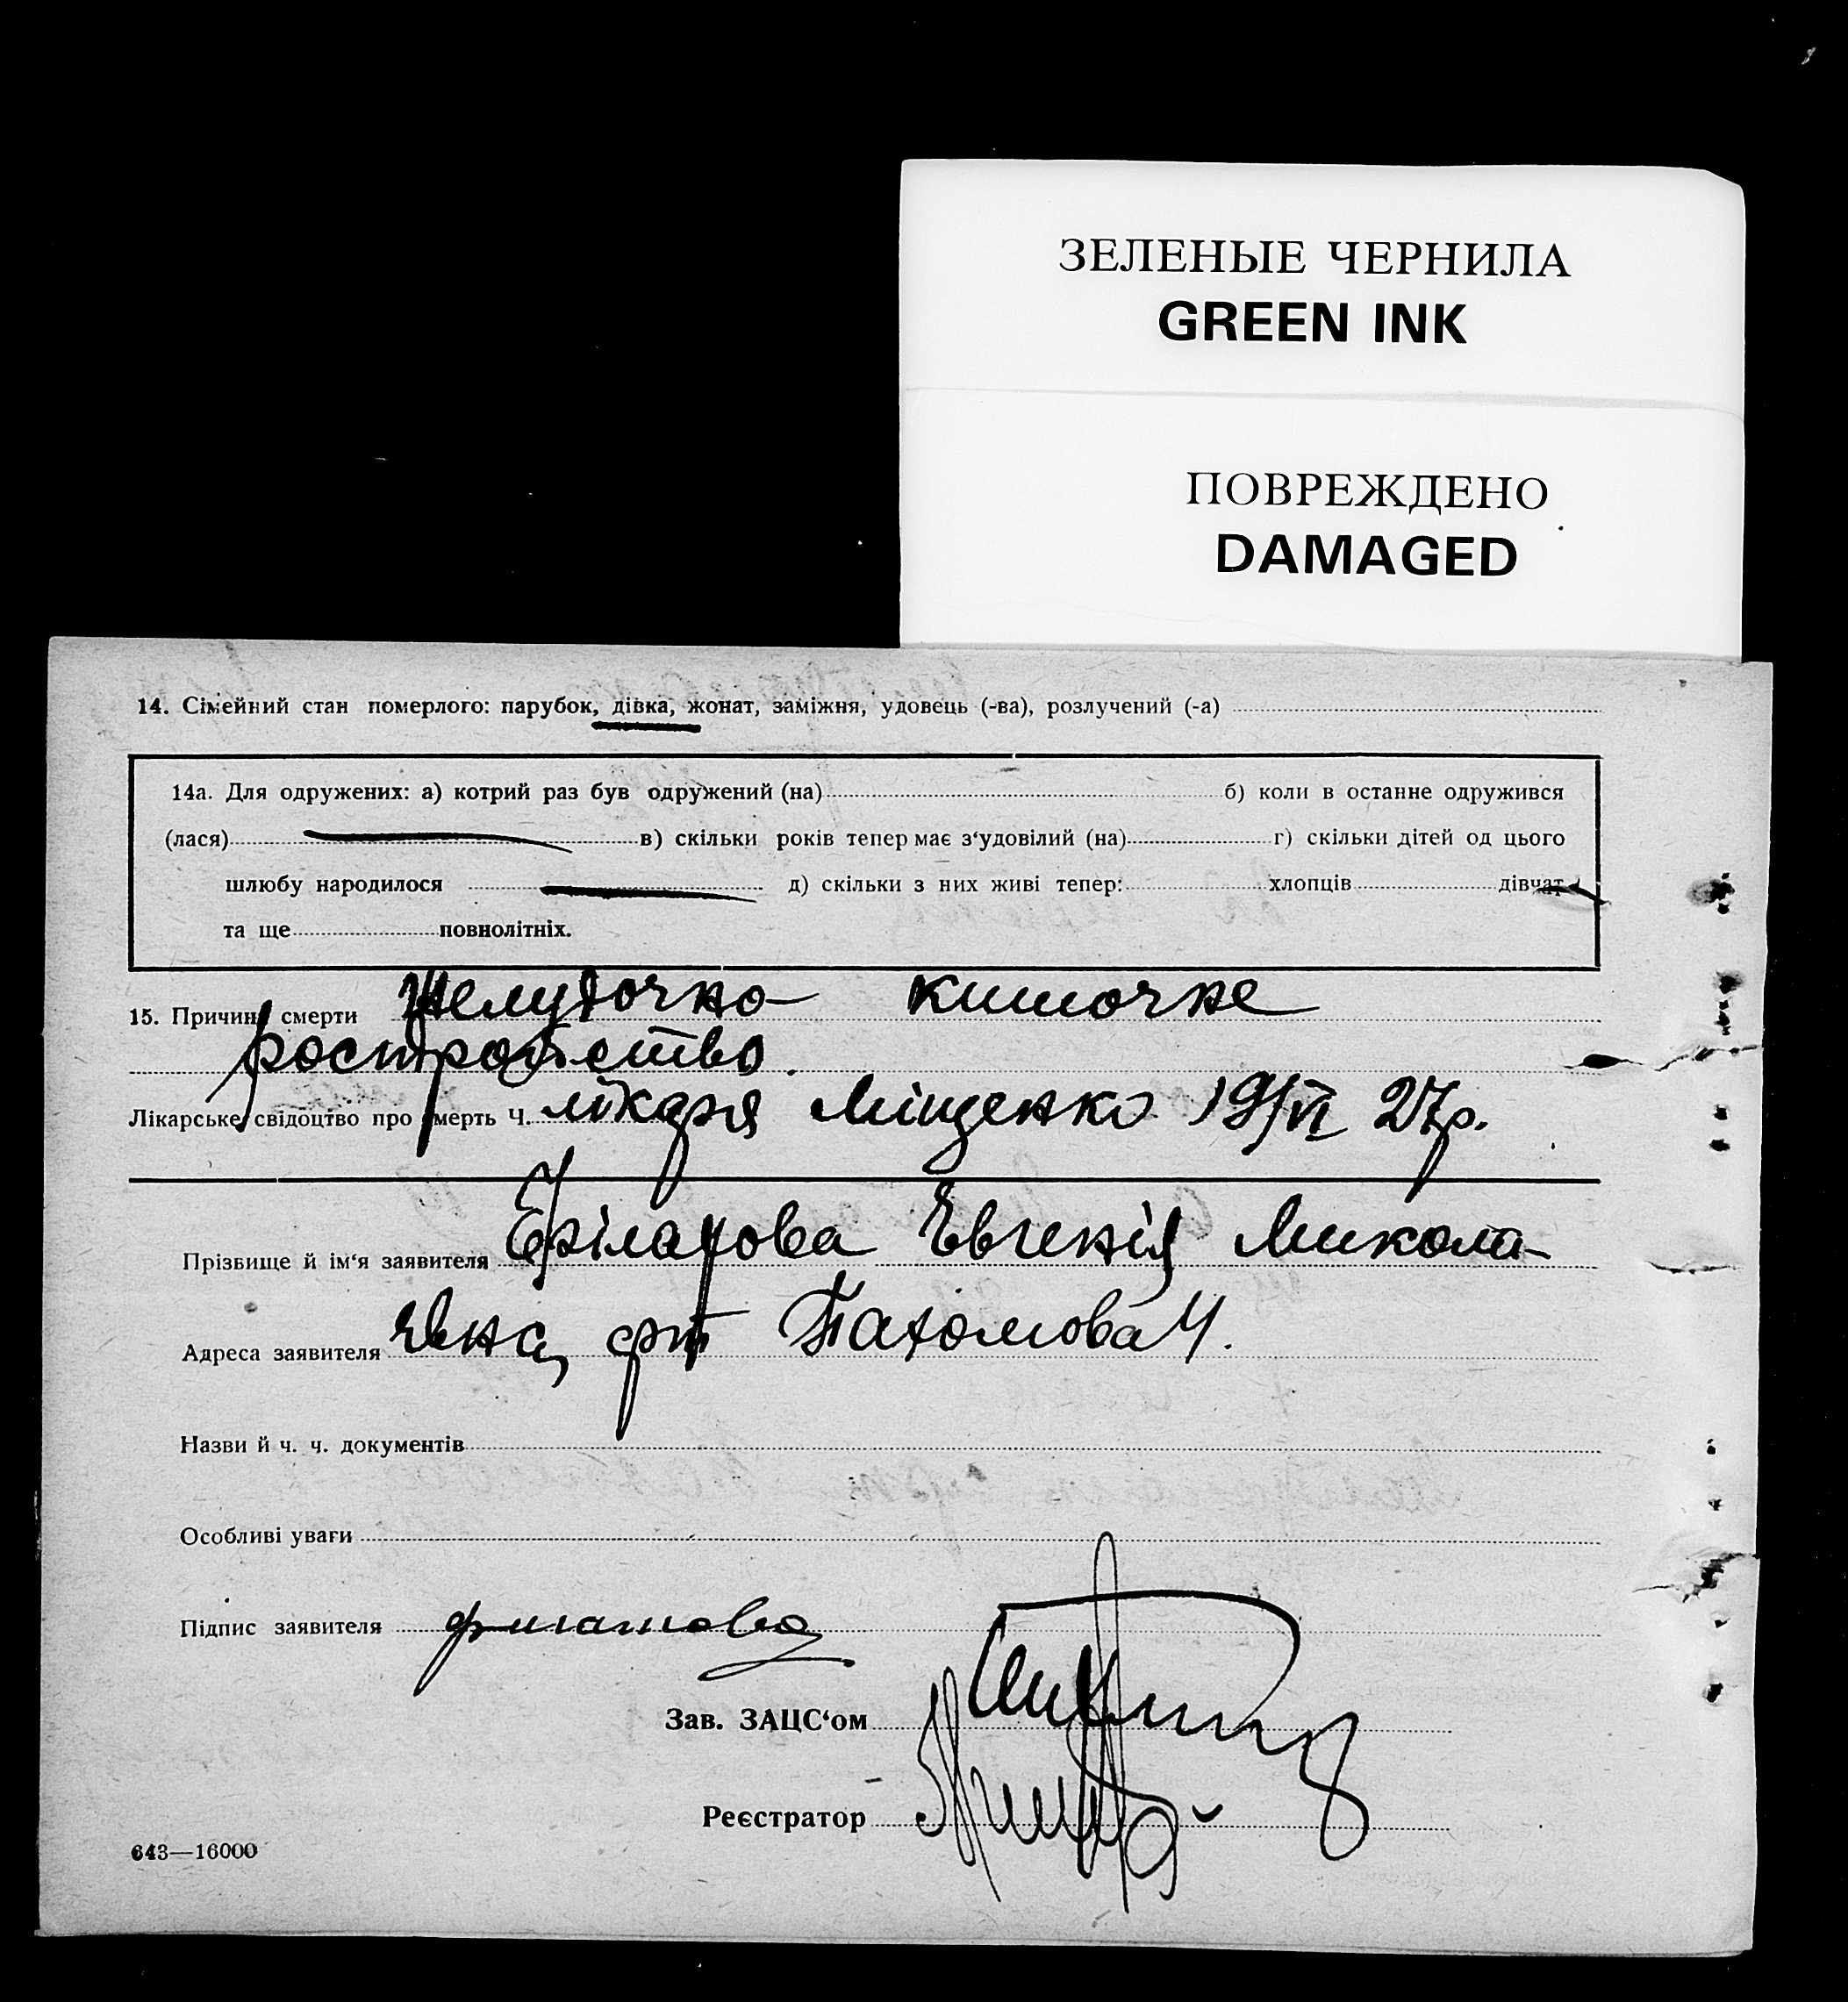 ЗЕЛЕНЫЕ ЧЕРНИЛА
GREEN INK
ПОВРЕЖДЕНО
DAMAGED
14. Сімейний стан померлого: парубок, дівка, жонат, заміжня, удовець (-ва), розлучений (-а)
14а. Для одружених: а) котрий раз був одружений (на) б) коли в останне одружився
(лася) в) скільки років тепер має з‘удовілий (на) г) скільки дітей од цього
шлюбу народилося д) скільки з них живі тепер: хлопців дівчат
та ще повнолітніх.
15. Причина смерти Желудочно- кишочне
росстройство.
Лікарське свідоцтво про смерть Ч. лікаря Міщенко 19/VI 27р.
Прізвище й ім‘я заявителя Евгенія Микола-
Адреса заявителя євна, Пахомова 4.
Назви й ч. ч. документів
Особливі уваги
Підпис заявителя
Зав. ЗАЦС‘ом
Реєстратор
643—16000